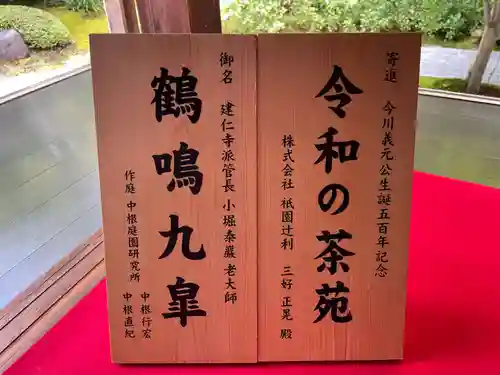 寄進 今川義元公生誕五百年記念
令和の茶苑
株式会社 祇園辻利 三好 正晃 殿
御名 建仁寺派管長 小堀泰巖 老大師
鶴鳴九皐
作庭 中根庭園研究所
中根行宏
中根直紀